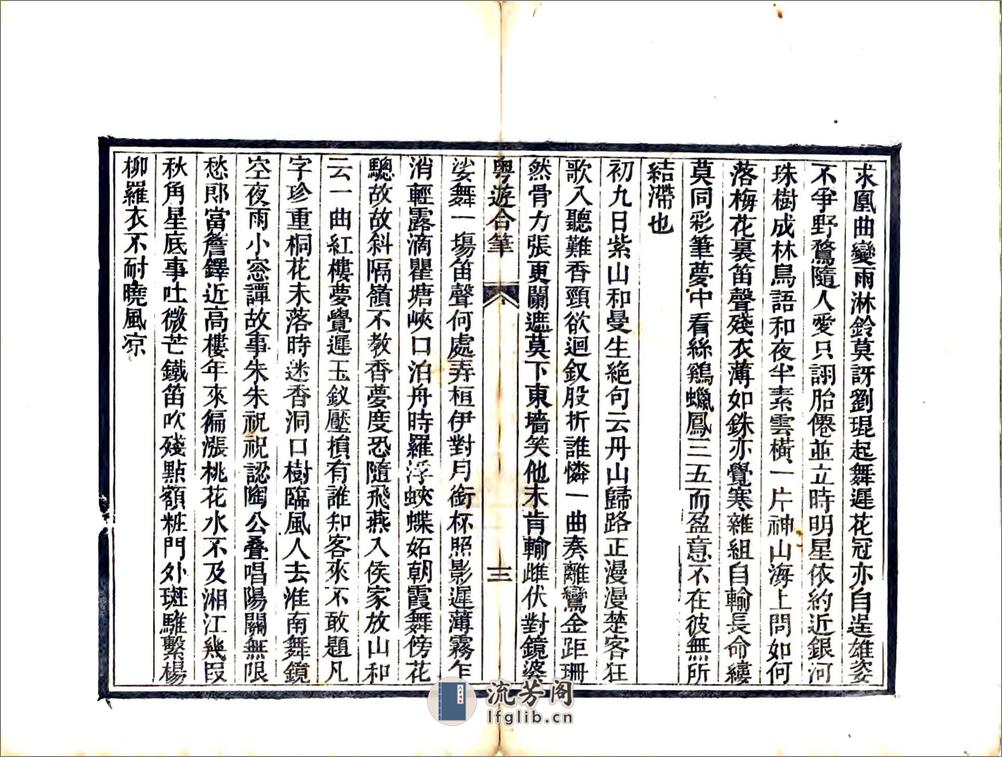 求凰曲變雨淋鈴莫訝劉琨起舞遲花冠亦自逞雄姿
不爭野鶩隨人愛只詡胎僊並立時明星依約近銀河
珠樹成林鳥語和夜半素雲橫一片神山海上問如何
落梅花裏笛聲殘衣薄如銖亦覺寒雜組自輸長命縷
莫同彩筆夢中看絲鷄蠟鳳三五而盈意不在彼無所
結滯也
初九日紫山和曼生絶句云丹山歸路正漫漫楚客狂
歌入聽難香頸欲迴釵股折誰憐一曲奏離鸞金距珊
然骨力張更闌遮莫下東墻笑他未肯輸雌伏對鏡婆
粤遊合筆
三
娑舞一塲笛聲何處弄桓伊對月銜杯照影遲薄霧乍
消輕露滴瞿塘峽口泊舟時羅浮蛺蝶妬朝霞舞傍花
驄故故斜隔嶺不教香夢度恐隨飛燕入侯家放山和
云一曲紅樓夢覺遲玉釵壓損有誰知客來不敢題凡
字珍重桐花未落時迷香洞口樹臨風人去淮南舞鏡
空夜雨小窓譚故事朱朱祝祝認陶公叠唱陽關無限
愁郎當簷鐸近高樓年來徧漲桃花水不及湘江幾叚
秋角星底事吐微芒鐵笛吹殘點額粧門外斑騅繫楊
柳羅衣不耐曉風凉
流芳阁
lfglib.cn